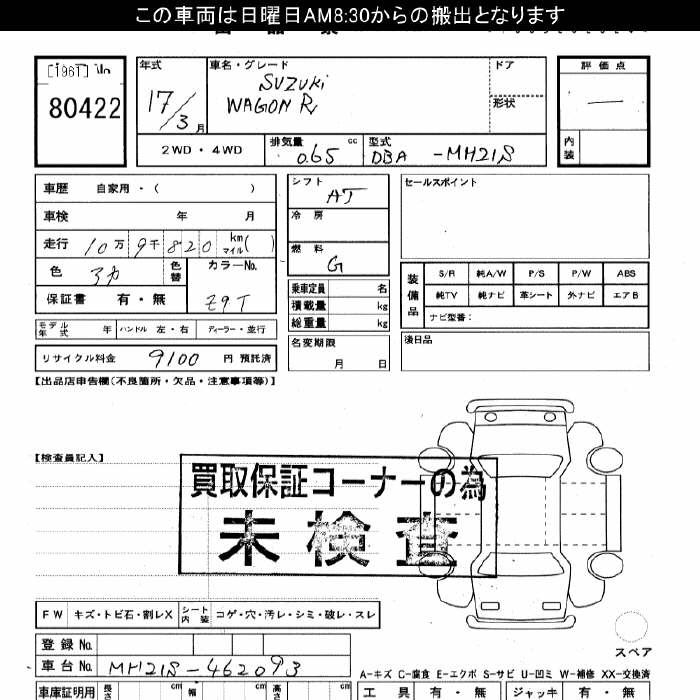 この車両は日曜日AM8:30からの搬出となります
80422
年式
17/3月
車名・グレード
SUZUKI
WAGON R
ドア
形状
評価点
—
内装
2WD・4WD
排気量 0.65 cc
型式 DBA -MH21S
車歴 自家用・( )
車検 年 月
走行 10万9千820 km マイル( )
色
色替
カラーNo.
Z9T
保証書 有・無
モデル年式 年 ハンドル 左・右 ディーラー・並行
リサイクル料金 9100 円 預託済
シフト
AT
冷房
燃料
G
乗車定員 名
積載量 kg
総重量 kg
名変期限
月 日
セールスポイント
装備品
S/R 純A/W P/S P/W ABS
純TV 純ナビ 革シート 外ナビ エアB
ナビ型番:
後日品
【出品店申告欄(不良箇所・欠品・注意事項等)】
【検査員記入】
買取保証コーナーの為
未検査
FW キズ・トビ石・割レX シート内装 コゲ・穴・汚レ・シミ・破レ・スレ
スペア
登録No.
車台No. MH21S-462093
A-キズ C-腐食 E-エクボ S-サビ U-凹ミ W-補修 XX-交換済
車庫証明用 長さ cm 幅 cm 高さ cm
工具 有・無 ジャッキ 有・無